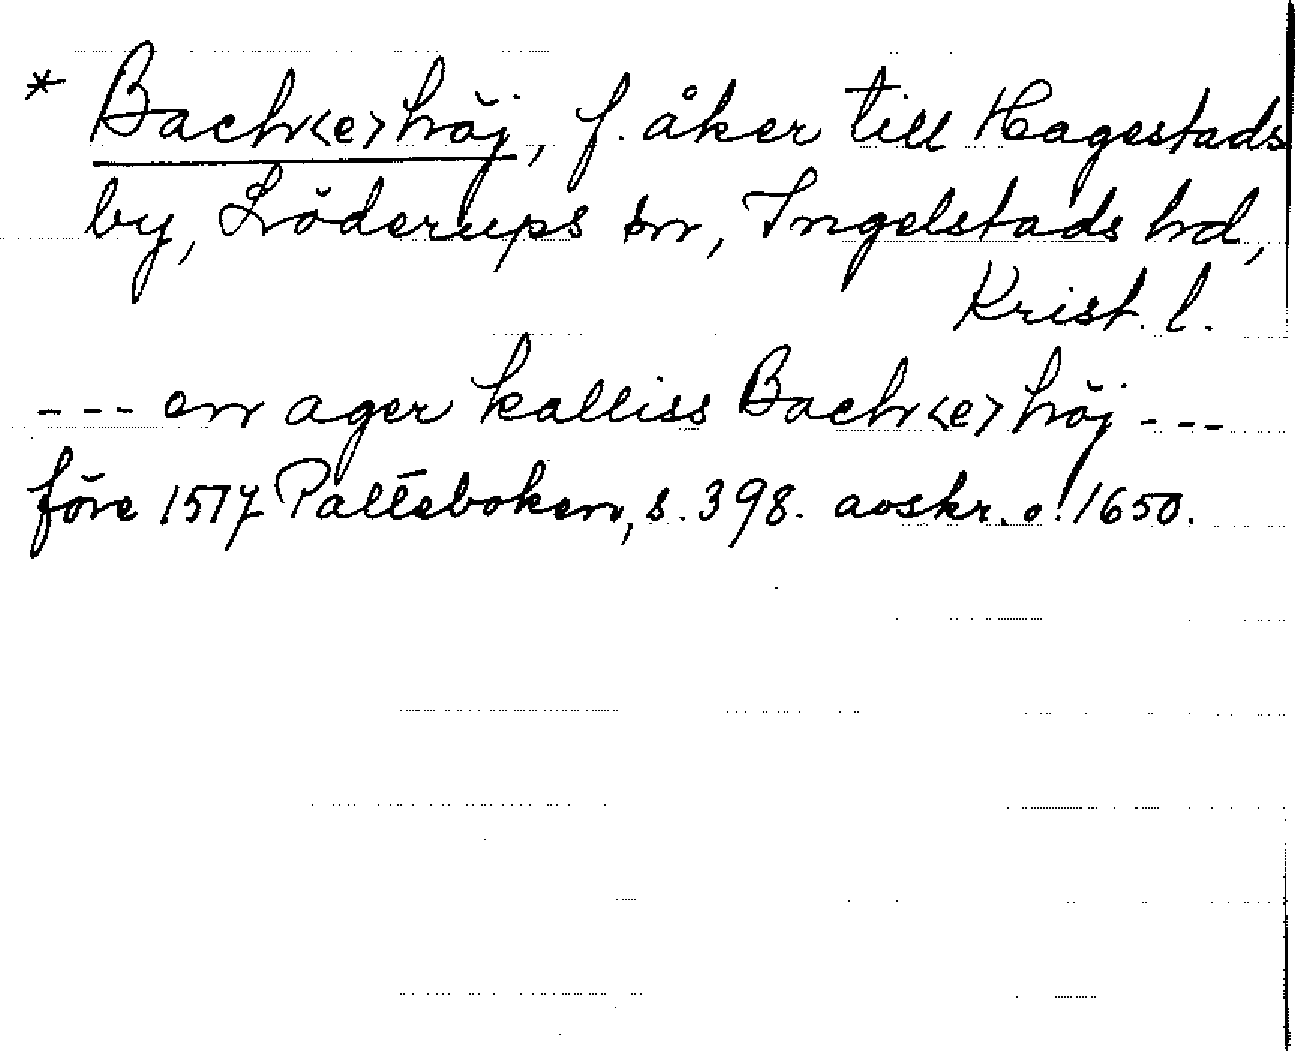 * Bach<e>höj, f. åker till Hagestads
by, Löderups sn, Ingelstads hd,
Krist. l.
--- en ager kalliss Bach<e>höj ---
före 1517 Palteboken, s. 398. avskr. o. 1650.